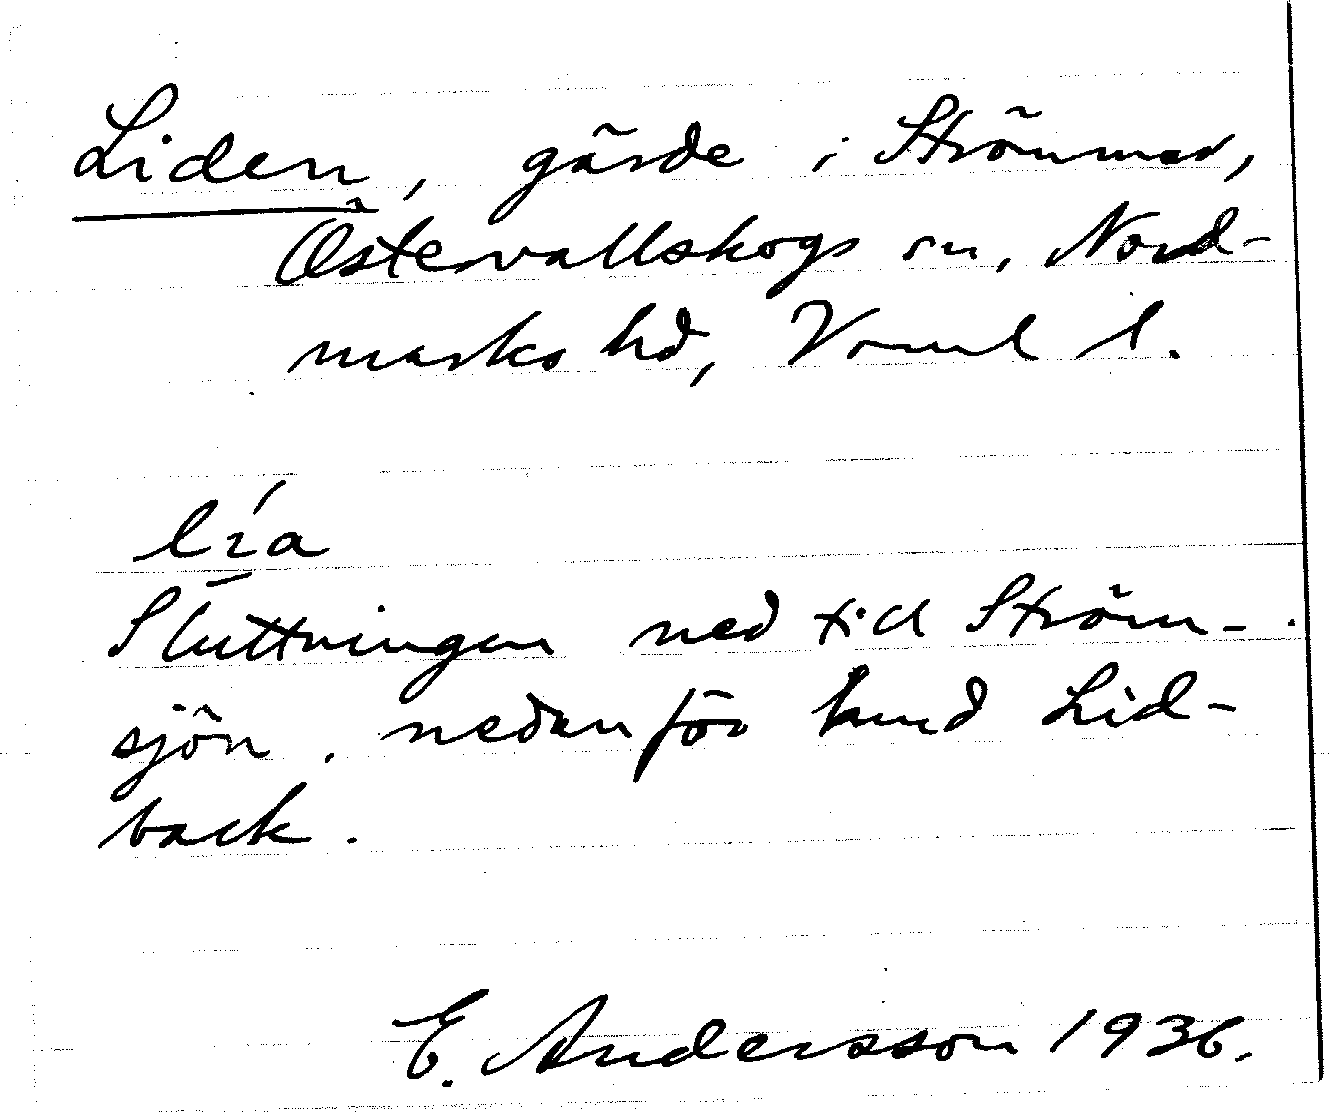 Liden, gärde i Strömmer,
Östervallskogs sn, Nord-
marks hd, Verml l.
lía
Sluttningen ned till Ström-
sjön. nedanför hmd Lid-
back.
E. Andersson 1936.